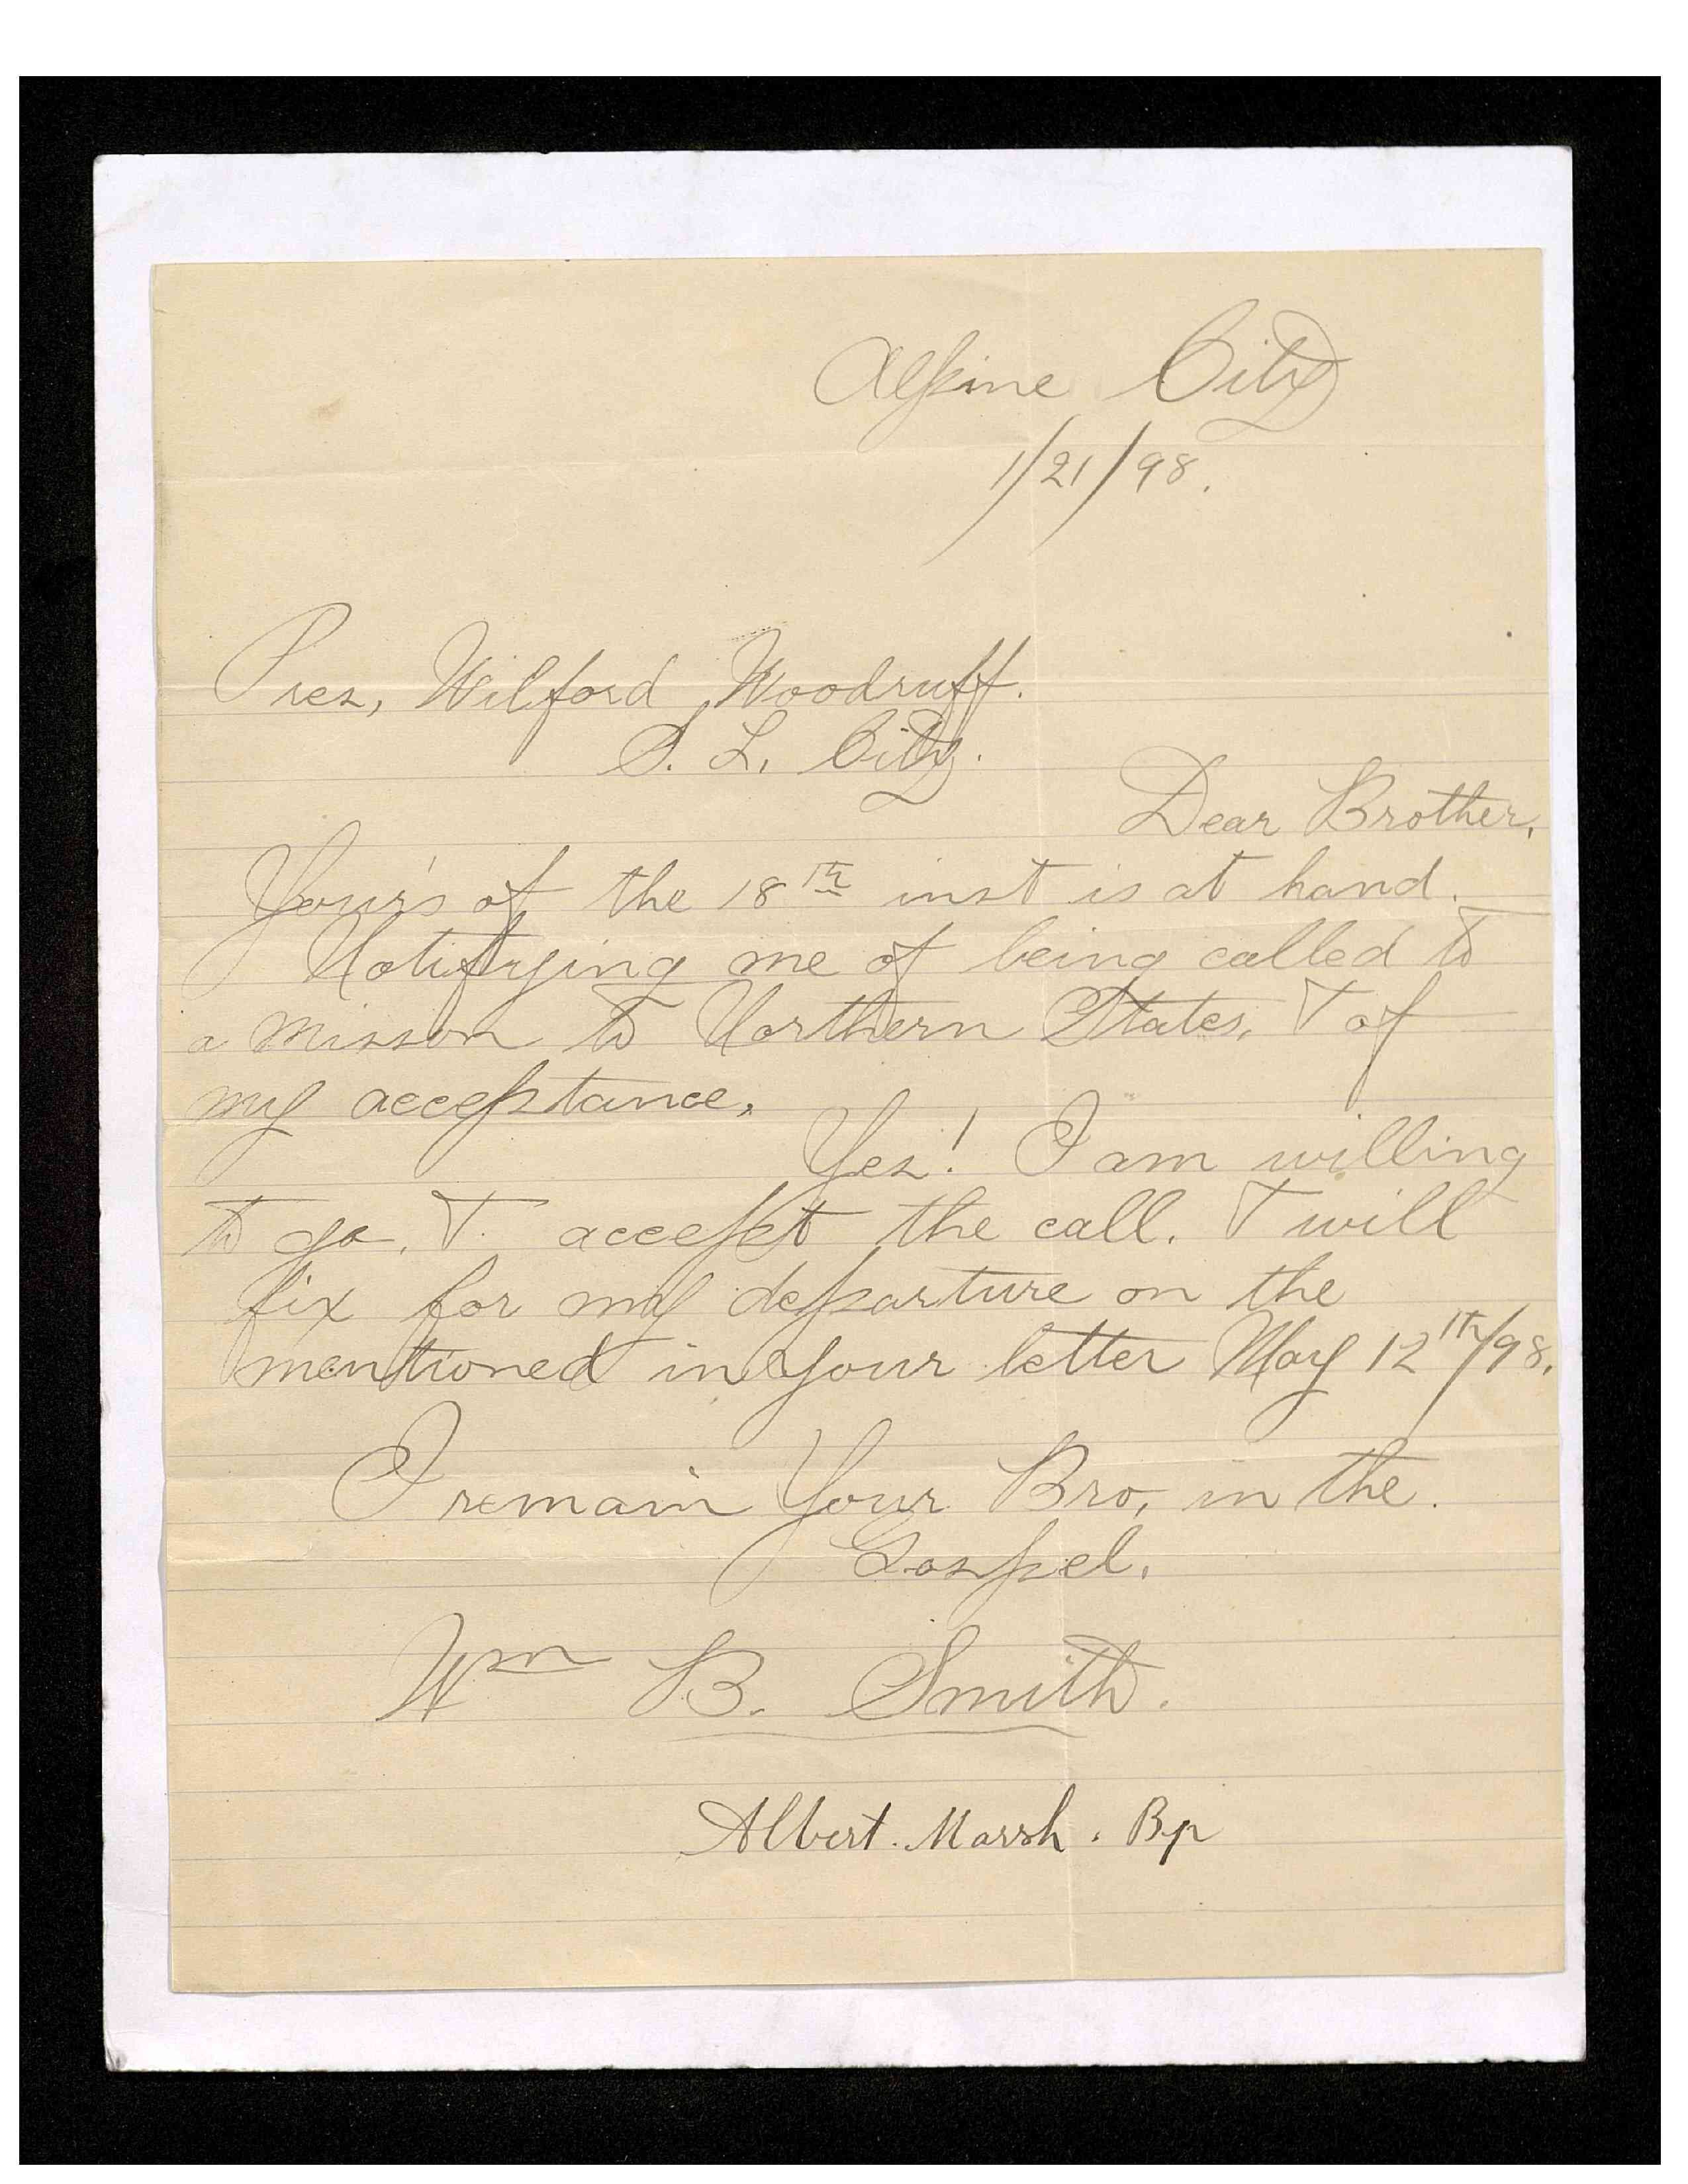 Alpine City
1/21/98.
Pres, Wilford Woodruff.
S. L. City.
Dear Brother,
Your's of the 18th inst is at hand.
Notifying me of being called to
a misson to Northern States, & of
my acceptance.
Yes! I am willing
to go. & accept the call. & will
fix for my departure on the
mentioned in your letter May 12th/98.
I remain Your Bro, in the.
Gospel.
Wm B. Smith.
Albert. Marsh. Bp